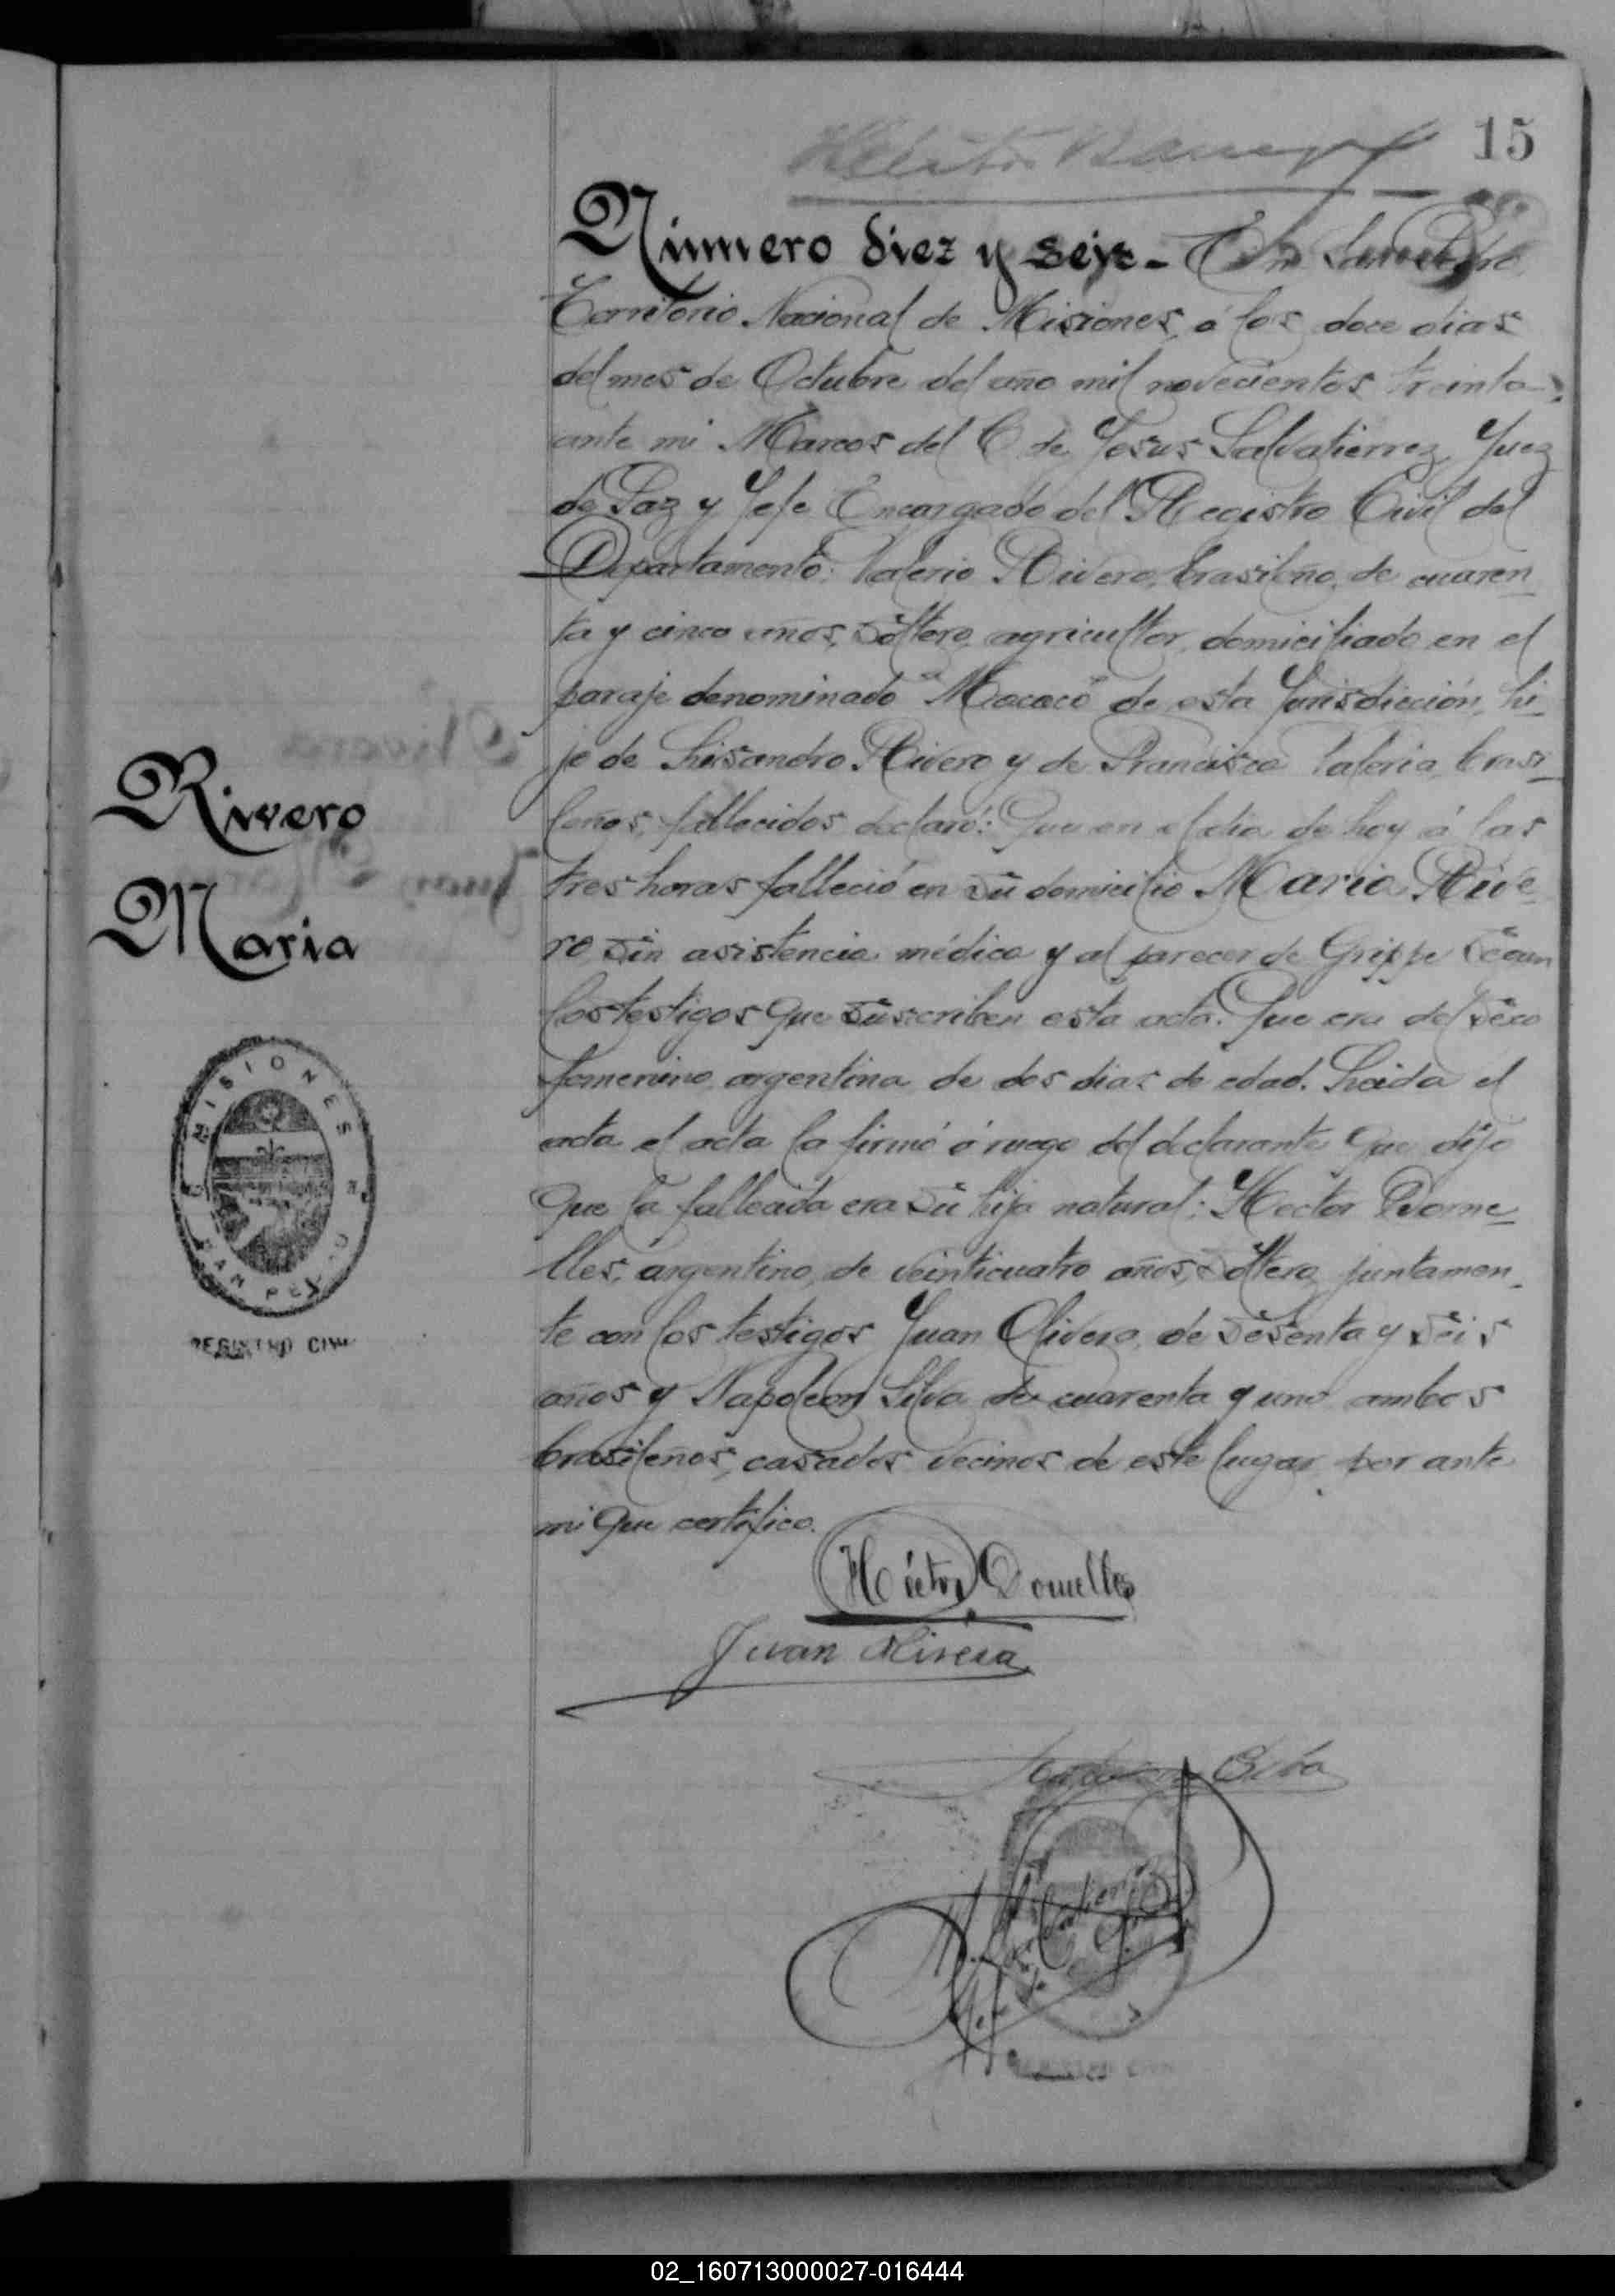 15
Número diez y seis - En San Pedro
Territorio Nacional de Misiones, á los doce dias
del mes de Octubre del año mil novecientos treinta,
ante mi Marcos del C de Jesus Salvatierrez Juez
de Paz y Jefe Encargado del Registro Civil del
Departamento: Valerio Rivero, brasileño, de cuaren
ta y cinco años, soltero, agricultor, domiciliado en el
paraje denominado "Mococó" de esta Jurisdicción, hi
jo de Lisandro Rivero y de Francisca Valeria, brasi
leños, fallecidos, declaró: Que en el dia de hoy á las
tres horas falleció en su domicilio Maria Rive
ro, sin asistencia médica y al parecer de Grippe
los testigos que suscriben esta acta. Que era del sexo
femenino, argentina de dos dias de edad. Leida el
acta el acta la firmó á ruego del declarante que dijo
que la fallecida era su hija natural: Hector Dorne
lles, argentino, de veinticuatro años, soltero, juntamen
te con los testigos Juan Olivera, de sesenta y seis
años y Napoleon Silva de cuarenta y uno ambos
brasileños, casados vecinos de este lugar por ante
mi que certifico.
Rivero
Maria
MISIONES
SAN PEDRO
REGISTRO CIVIL
Héctor Dornelles
Juan Olivera
Napoleon Silva
02_160713000027-016444